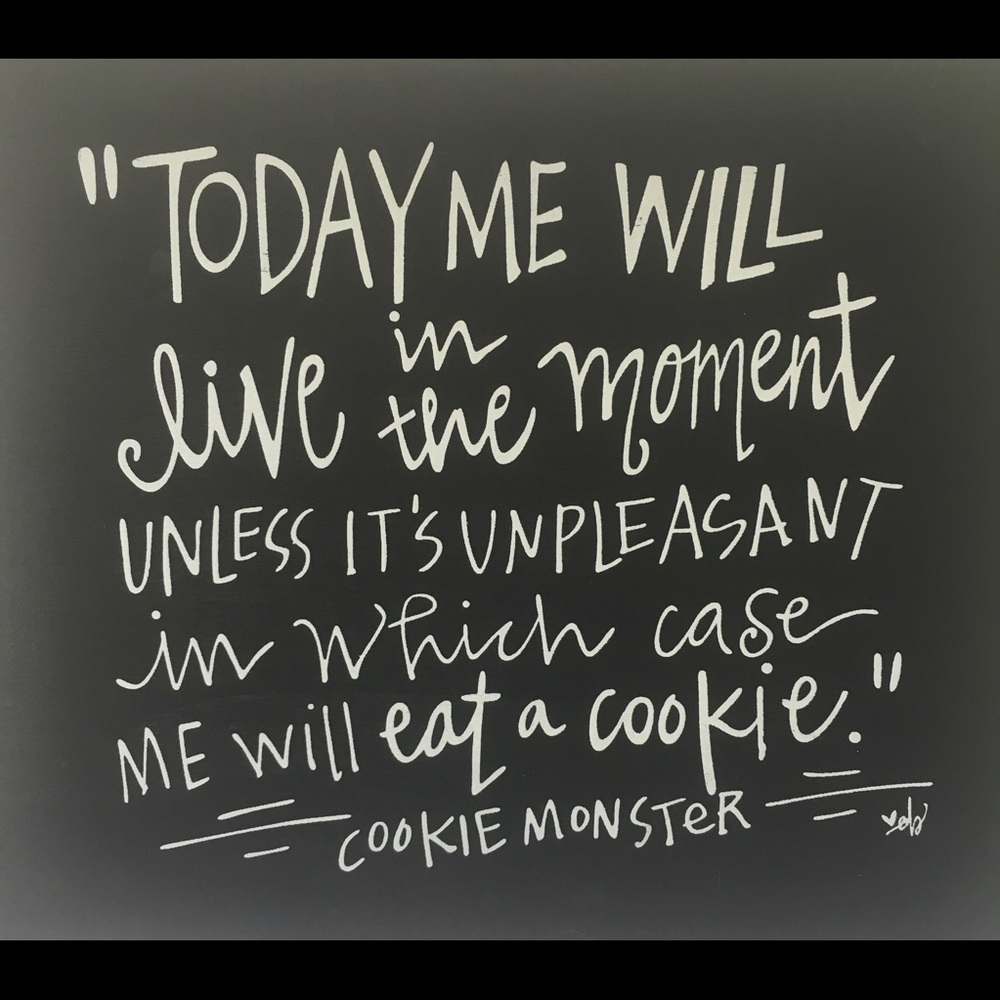 "TODAY ME WILL
live in the moment
UNLESS IT'S UNPLEASANT
in which case
ME will eat a cookie."
COOKIE MONSTER